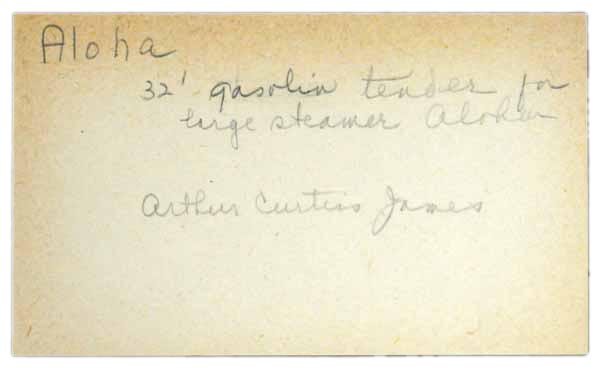 Aloha
32' gasolin tender for
large steamer Aloha
Arthur Curtiss James